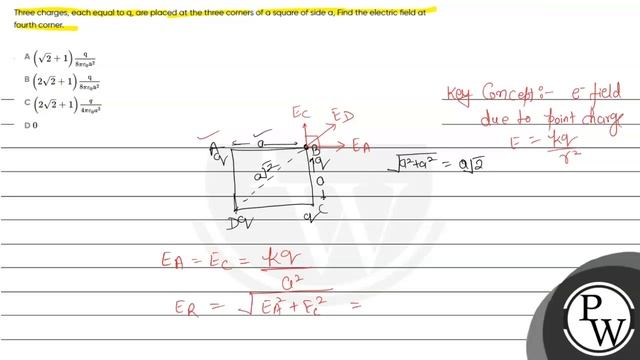 Three charges, each equal to q, are placed at the three corners of a square of side a, Find the electric field at
fourth corner.
A (√2 + 1) q/8πε₀a²
B (2√2 + 1) q/8πε₀a²
C (2√2 + 1) q/4πε₀a²
D 0
Key Concept:- e⁻ field
due to point charge
E = kq/r²
E_C E_D
A a B E_A
q q
a√2 a
√a²+a² = a√2
D q q C
E_A = E_C = kq/a²
E_R = √E_A² + E_C² =
PW